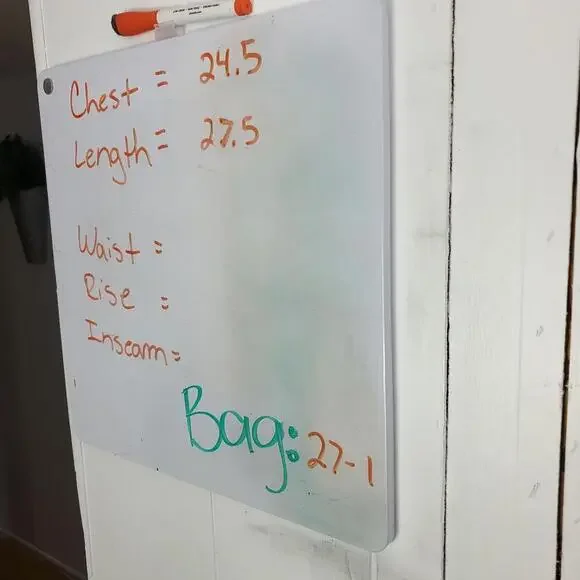 Chest = 24.5
Length = 27.5
Waist =
Rise =
Inseam =
Bag: 27-1